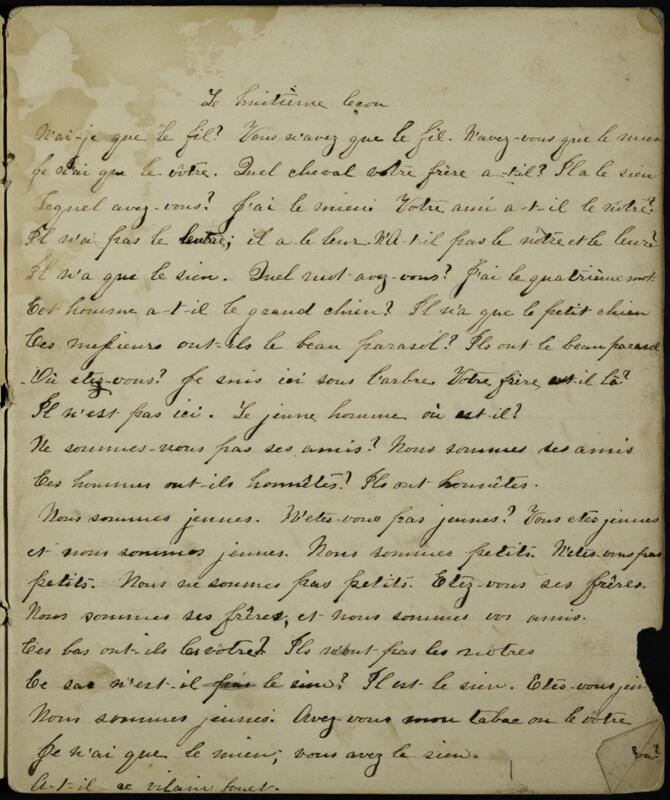 Le huitième leçon
N'ai-je que le fil? Vous n'avez que le fil. N'avez-vous que le mien
Je n'ai que le vôtre. Quel cheval votre frère a-t-il? Il a le sien
Lequel avez-vous? J'ai le mien. Votre ami a-t-il le nôtre?
Il n'a pas le; il a le leur. N'A-t-il pas le nôtre et le leur?
Il n'a que le sien. Quel mot avez-vous? J'ai le quatrième mot.
Cet homme a-t-il le grand chien? Il n'a que le petit chien
Ces messieurs ont-ils le beau parasol? Ils ont le beau parasol
Où etez-vous? Je suis ici sous l'arbre. Votre frère est-il là?
Il n'est pas ici. Le jeune homme où est-il?
Ne sommes-nous pas ses amis? Nous sommes ses amis
Ces hommes ont-ils honnêtes? Ils ont honnêtes.
Nous sommes jeunes. N'etes-vous pas jeunes? Vous etes jeunes
et nous sommes jeunes. Nous sommes petits. N'etes-vous pas
petits. Nous ne soumes pas petits. Etez-vous ses frères.
Nous sommes ses frères, et nous sommes vos amis.
Ces bas ont-ils les vôtres? Ils n'ont pas les nôtres
Ce sac n'est-il pas le sien? Il est le sien. Etes-vous jeun
Nous sommes jeunes. Avez-vous mon tabac ou le vôtre
Je n'ai que le mien; vous avez le sien.
A-t-il ce vilain fouet.